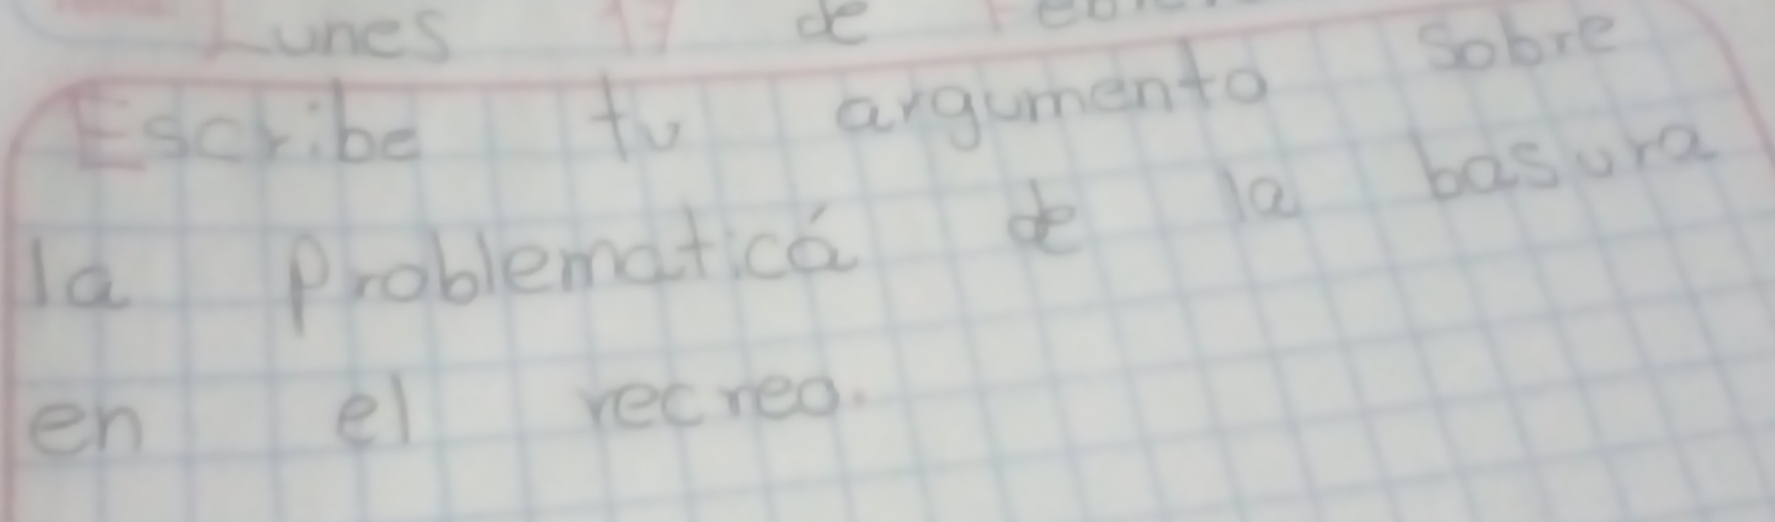 Lunes 17 de
Escribe tu argumento sobre
la problematicá de la basura
en el recreo.